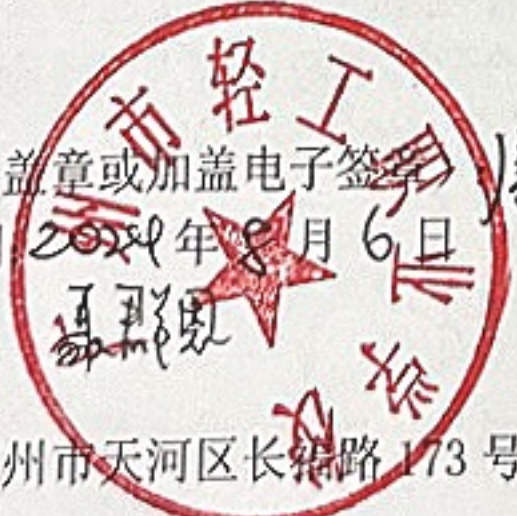 州市轻工职业学校
盖章或加盖电子签章)
2024年8月6日
州市天河区长福路173号